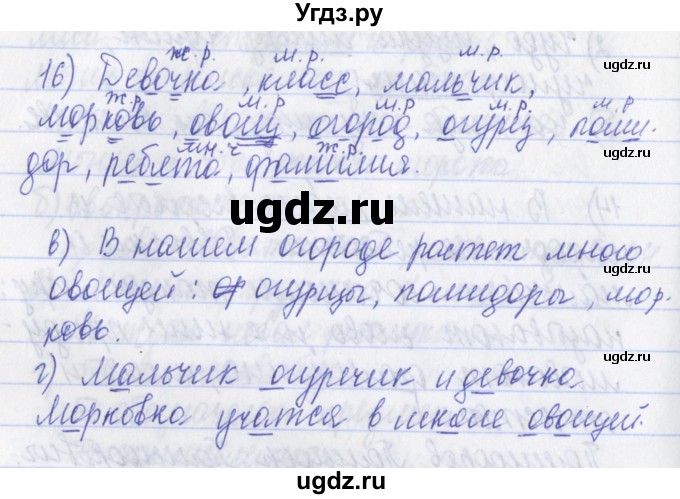 Угдз.ру
ж.р. м.р. м.р.
16) Девочка, класс, мальчик,
ж.р. м.р м.р. м.р. м.р
морковь, овощ, огород, огурец, поми-
мн.ч ж.р.
дор, ребята, фамилия.
ugdz.ru
в) В нашем огороде растет много
овощей: огурцы, помидоры, мор-
ковь.
г) Мальчик огуречик и девочка
Морковка учатся в школе овощей.
ugdz.ru
ugdz.ru
ugdz.ru
ugdz.ru
ugdz.ru
ugdz.ru